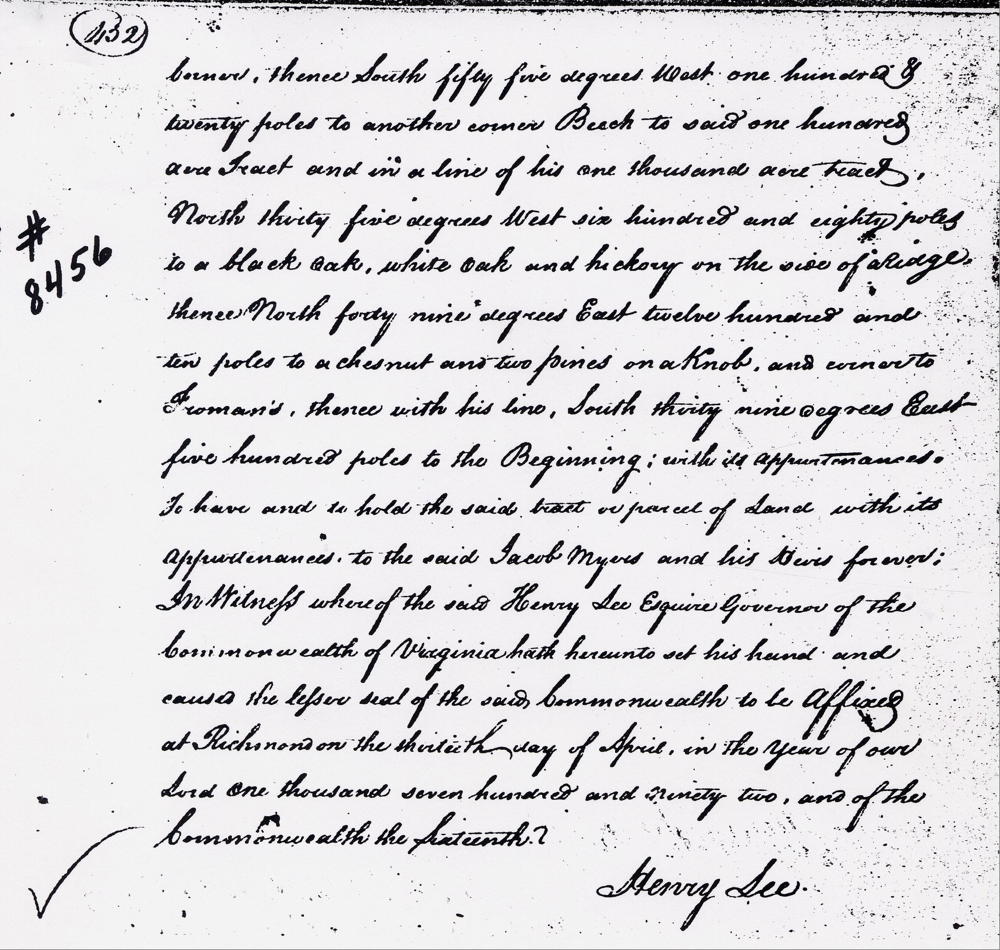 432
corner, thence South fifty five degrees West one hundred &
twenty poles to another corner Beech to said one hundred
acre Tract and in a line of his one thousand acre tract,
North thirty five degrees West six hundred and eighty poles
to a black oak, white oak and hickory on the side of a Ridge,
thence North forty nine degrees East twelve hundred and
ten poles to a chesnut and two pines on a Knob, and corner to
Froman's, thence with his line, South thirty nine degrees East
five hundred poles to the Beginning; with its appurtenances.
To have and to hold the said tract or parcel of Land with its
appurtenances. to the said Jacob Myers and his Heirs forever;
In Witness whereof the said Henry Lee Esquire Governor of the
Commonwealth of Virginia hath hereunto set his hand and
caused the lesser seal of the said Commonwealth to be Affixed
at Richmond on the thirtieth day of April, in the Year of our
Lord one thousand seven hundred and ninety two, and of the
Commonwealth the sixteenth.
Henry Lee.
# 8456